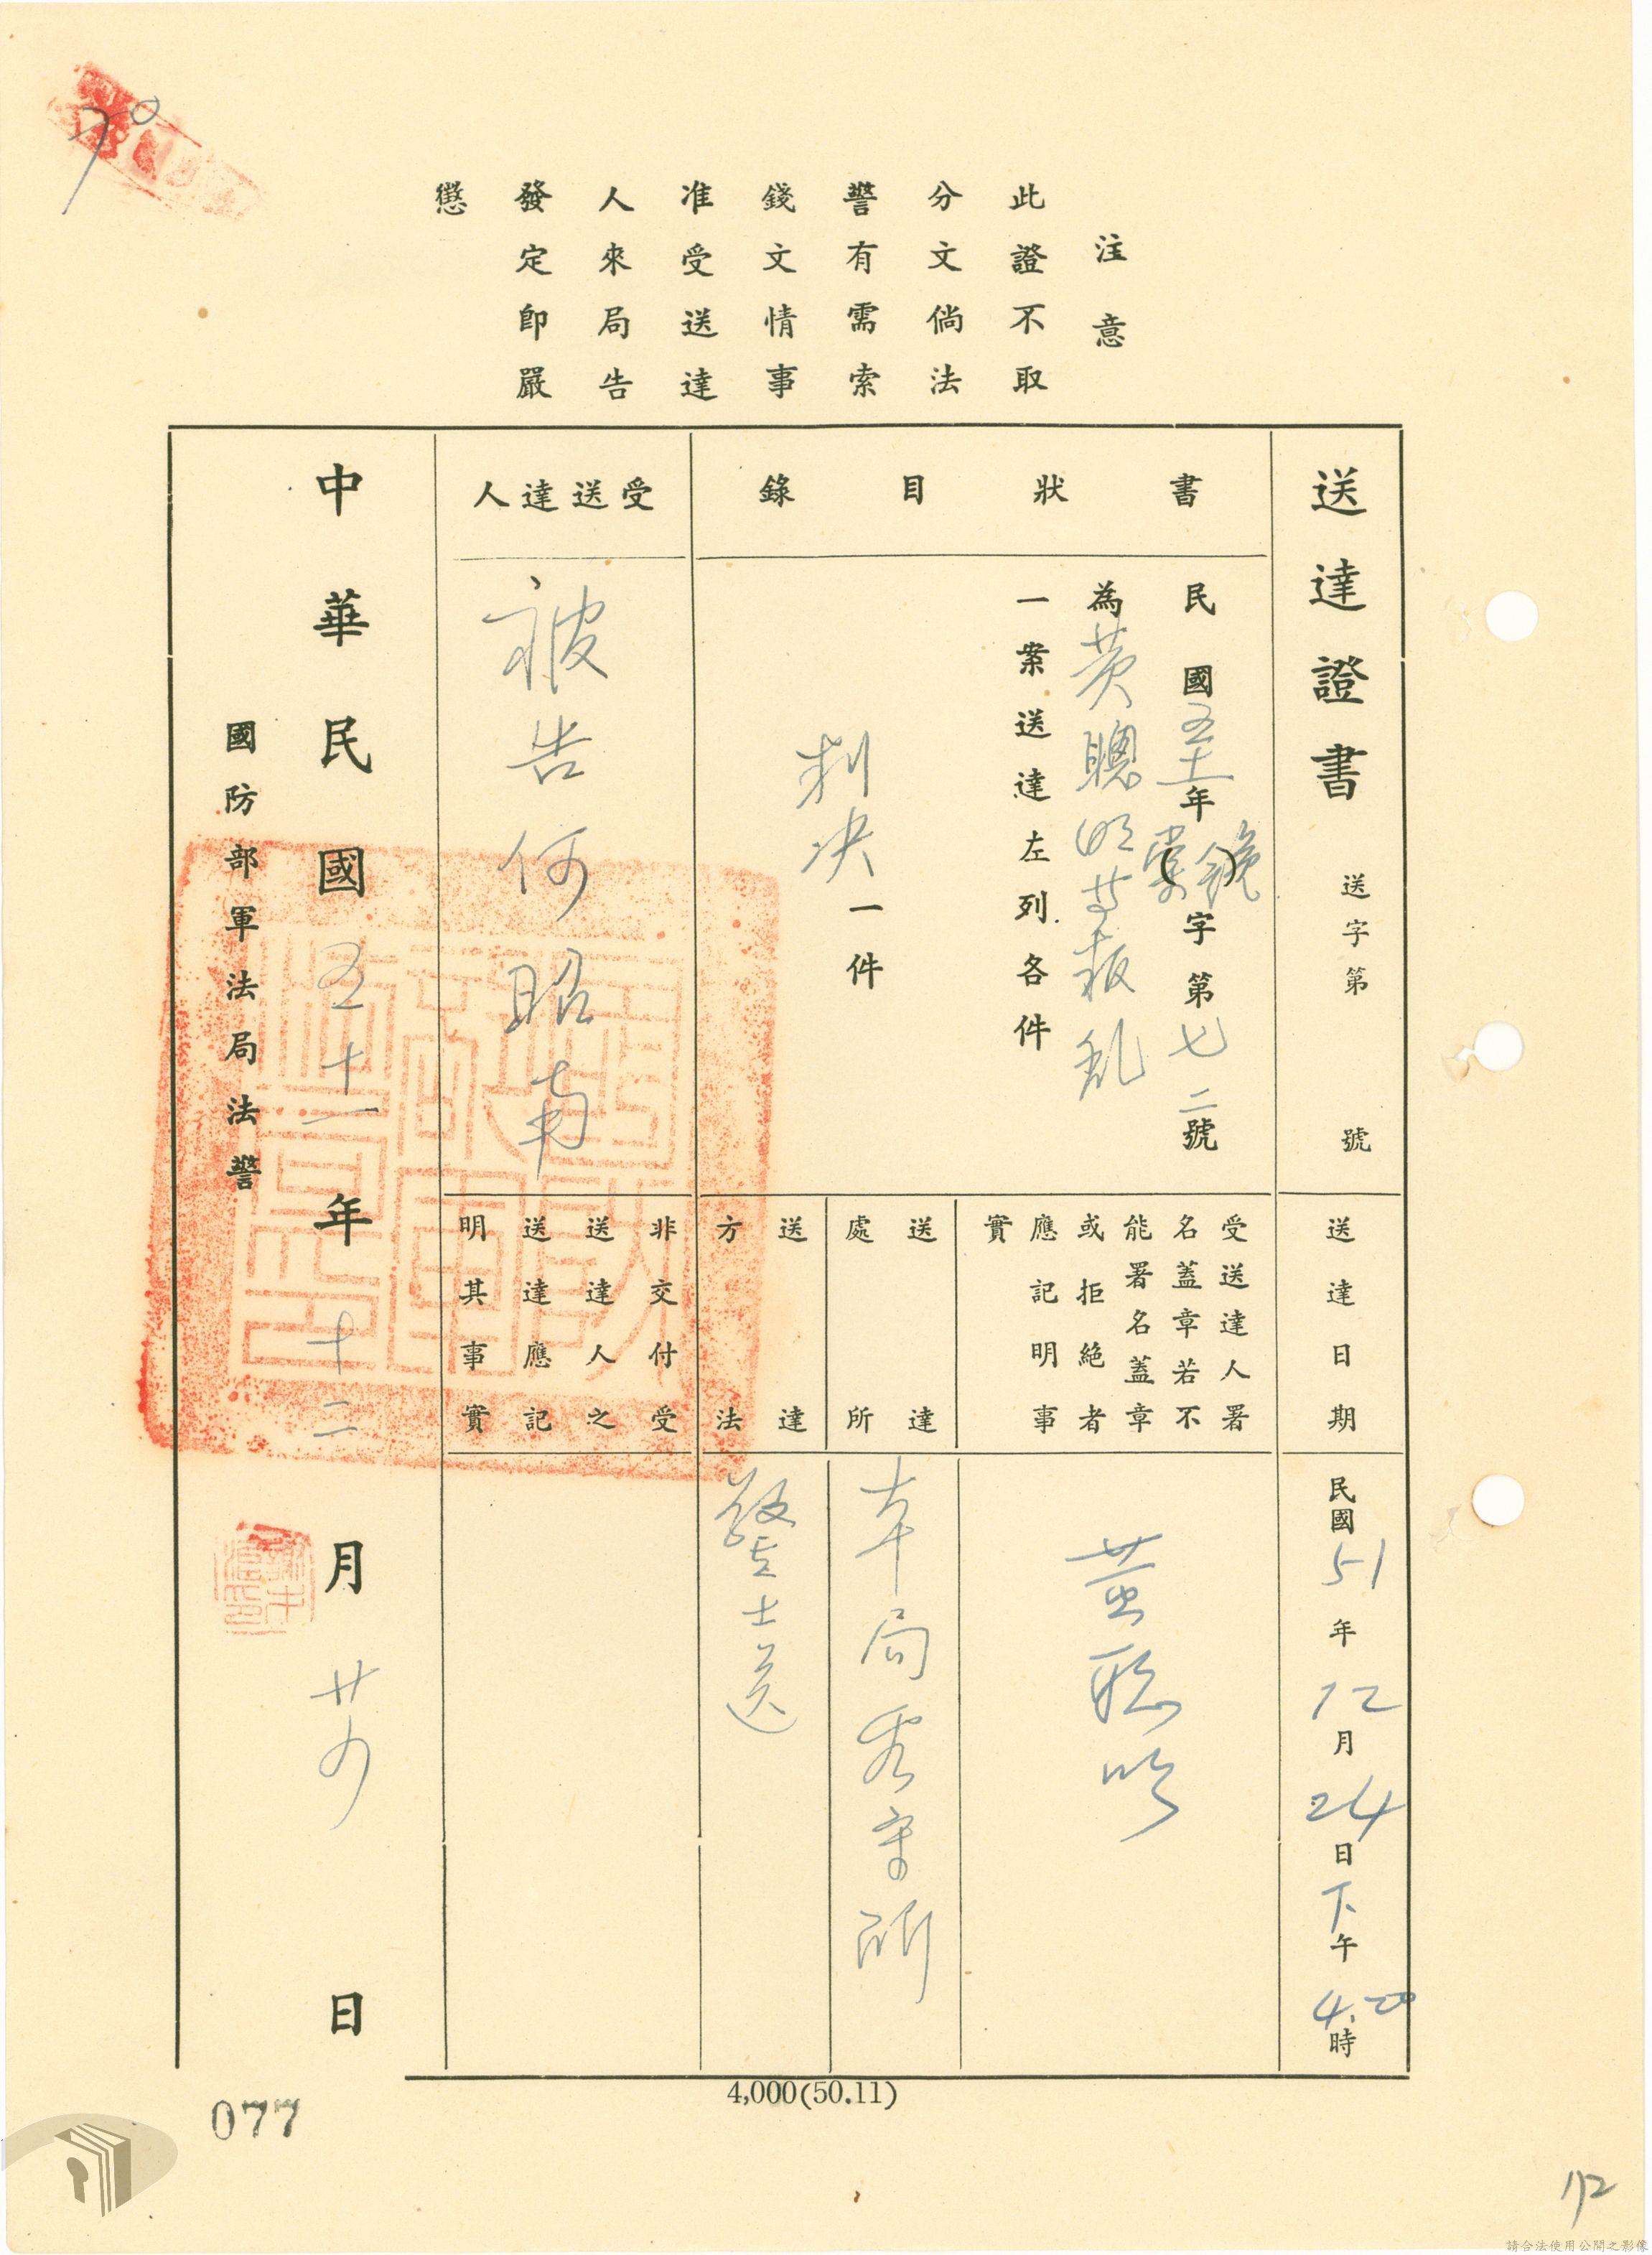 注意
此證不取
分文倘法
警有需索
錢文情事
准受送達
人來局告
發定即嚴
懲
送達證書 送字第 號
送達日期
民國51年12月24日下午4.20時
書狀目錄
民國五十一年 字第七二號
為黃聰明等叛乱
一案送達左列各件
判決一件
受送達人署
名蓋章若不
能署名蓋章
或拒絕者
應記明事
實
黃聰明
送達
處所
本局看守所
送達
方法
警士送
受送達人
被告何昭南
非交付受
送達人之
送達應記
明其事實
中華民國五十一年十二月廿四日
國防部軍法局法警
4,000(50.11)
077
112
70
請合法使用公開之影像